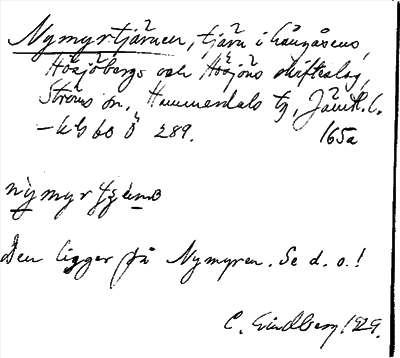 Nymyrtjärnen, tjärn i Långåsens,
Högbergs och Högsjöns skifteslag,
Ströms sn, Hammerdals tg, Jämtl. l.
Ö 289. 165a
Den ligger på Nymyren. Se d. o.!
C. Lindberg 1929.